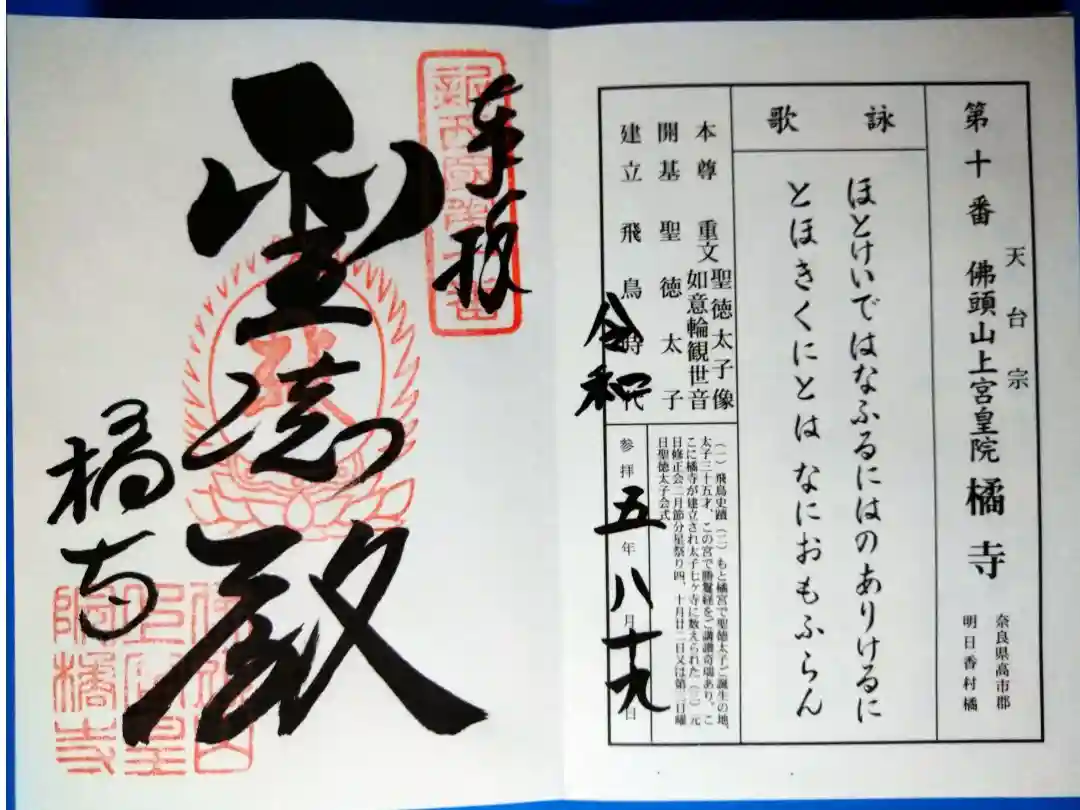 第十番 佛頭山上宮皇院 橘寺
天台宗
奈良県高市郡
明日香村橘
詠歌
ほとけいではなふるにはのありけるに
とほきくにとは なにおもふらん
本尊 重文 聖徳太子像
如意輪観世音
開基 聖徳太子
建立 飛鳥時代
(一)飛鳥史蹟(二)もと橘宮で聖徳太子ご誕生の地、
太子三十五才、この宮で勝鬘経をご講讃奇瑞あり。こ
こに橘寺が建立され太子七ヶ寺に数えられた(三)元
日修正会二月節分星祭り四、十月廿二日又は第三日曜
日聖徳太子会式
令和
参拝 五年 八月 十九日
奉拝
聖徳殿
橘寺